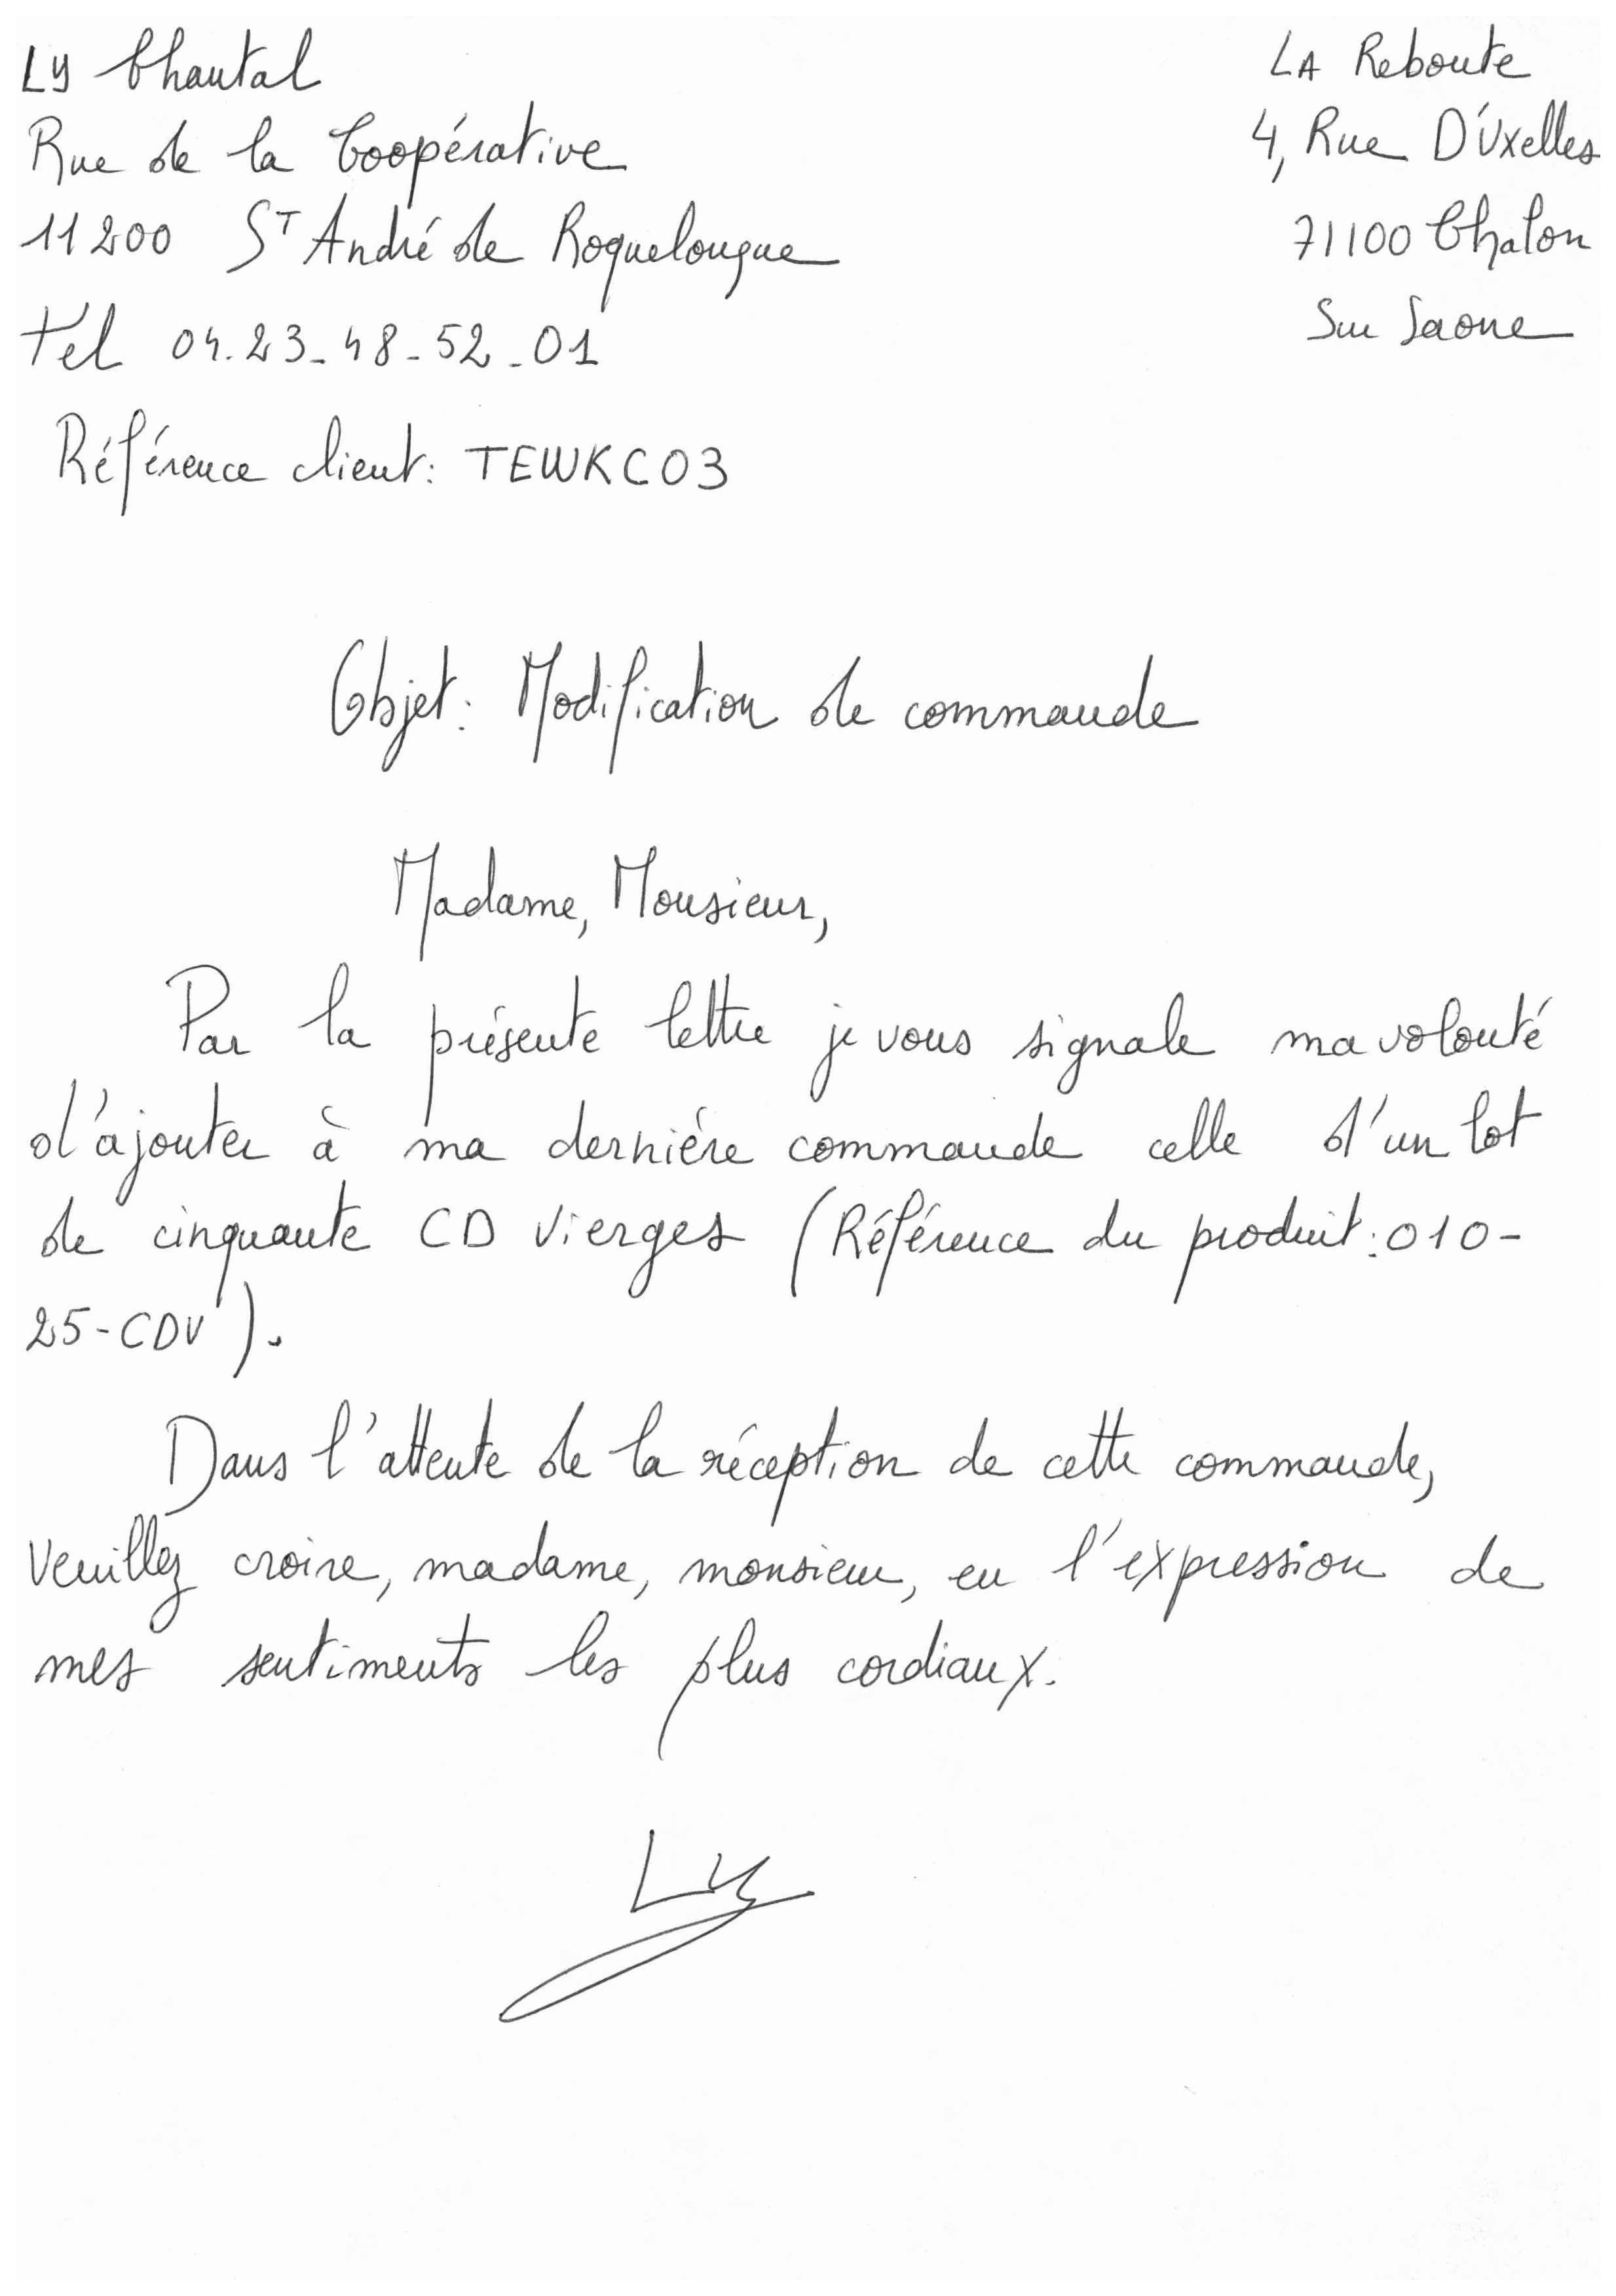 Ly Chantal
Rue de la Coopérative
11200 St André de Roquelongue
Tel 04.23-48-52-01
Référence client: TEWKC03
LA Reboute
4, Rue D'Uxelles
71100 Chalon
Sur Saone
Objet: Modification de commande
Madame, Monsieur,
Par la présente lettre je vous signale ma volonté
d'ajouter à ma derniére commande celle d'un lot
de cinquante CD vierges (Référence du produit: 010-
25-CDV).
Dans l'attente de la réception de cette commande,
veuillez croire, madame, monsieur, en l'expression de
mes sentiments les plus cordiaux.
Ly